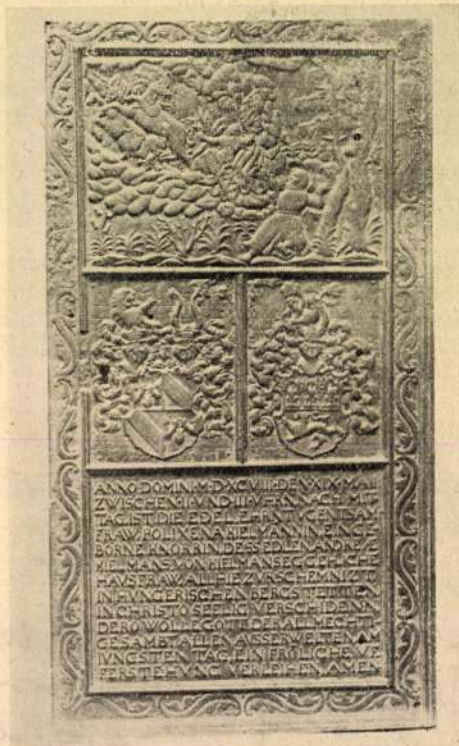 ANNO DOMINI M D XC VIII DEN XIX MAII
ZWISCHEN I UND II VHRN NACH MIT
TAG IST DIE EDEL EHRN TVGENTSAM
FRAW POLIXENA KIELMANNIN EIN GE
BORNE KNORRIN DESS EDLEN ANDRE
KIELMANS VON KIELMANSEGG EHLICHE
HAVSFRAW ALLHIE ZVR SCHEMNIZ
IN HVNGERISCHEN BERGSTETTEN
IN CHRISTO SEELIG VERSCHIDEN IN
DERO WOLLE GOTT DER ALLMECHTI
GESAMBT ALLEN AVSSERWELTEN AM
IVNGSTEN TAG EIN FRÖLICHE VF
FERSTEHVNG VERLEIHEN AMEN